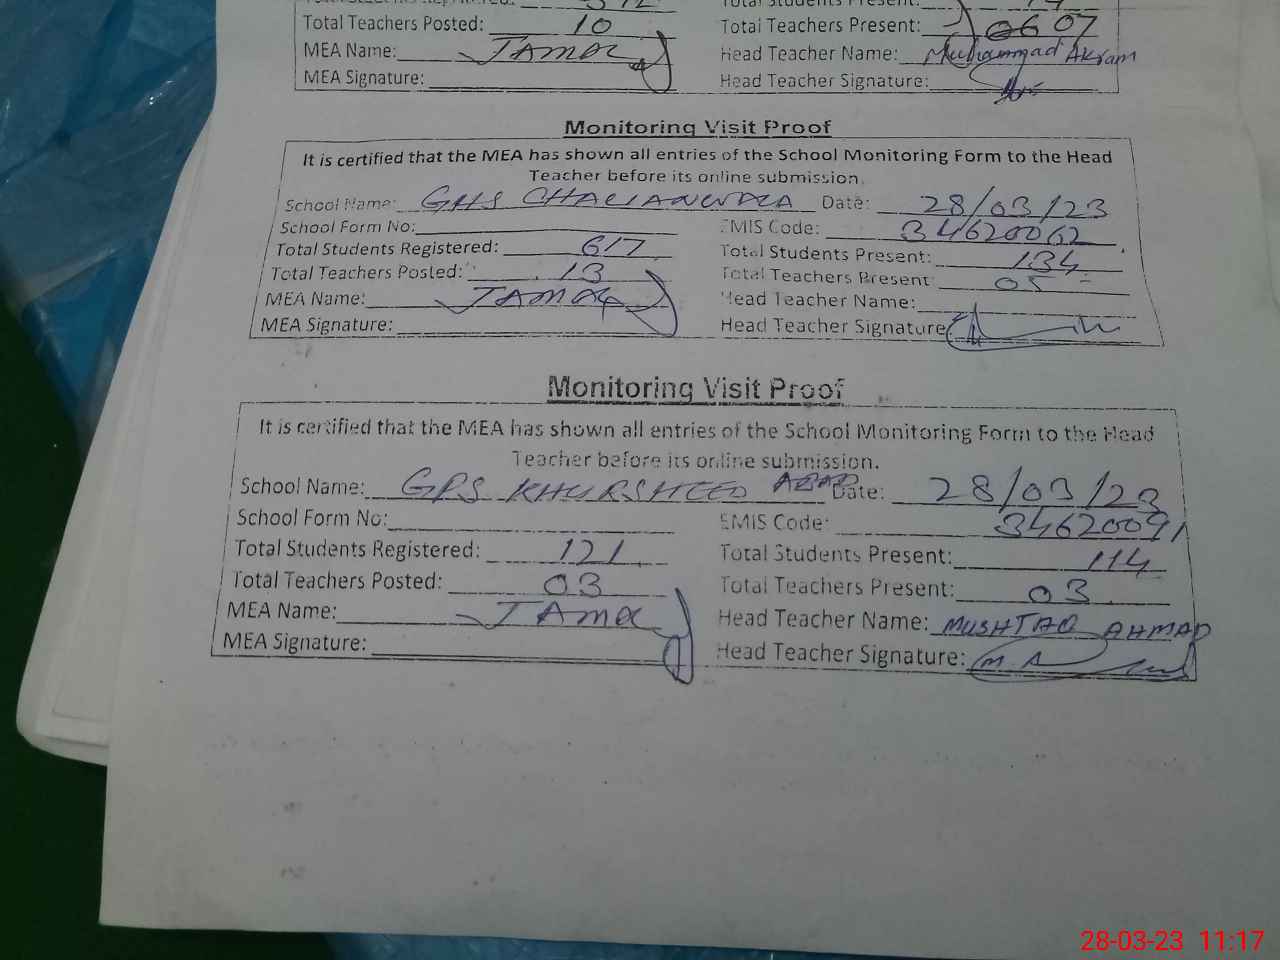 Total Teachers Posted: 10 Total Teachers Present: 0607
MEA Name: JAMAL Head Teacher Name: Muhammad Akram
MEA Signature: Head Teacher Signature:
Monitoring Visit Proof
It is certified that the MEA has shown all entries of the School Monitoring Form to the Head
Teacher before its online submission.
School Name: GHS CHALIANWALA Date: 28/03/23
School Form No: EMIS Code: 34620062
Total Students Registered: 617 Total Students Present: 134
Total Teachers Posted: 13 Total Teachers Present: 05
MEA Name: JAMAL Head Teacher Name:
MEA Signature: Head Teacher Signature:
Monitoring Visit Proof
It is certified that the MEA has shown all entries of the School Monitoring Form to the Head
Teacher before its online submission.
School Name: GPS KHURSHEED ABAD Date: 28/03/23
School Form No: EMIS Code: 34620091
Total Students Registered: 121 Total Students Present: 114
Total Teachers Posted: 03 Total Teachers Present: 03
MEA Name: JAMAL Head Teacher Name: MUSHTAQ AHMAD
MEA Signature: Head Teacher Signature: M.A
28-03-23 11:17